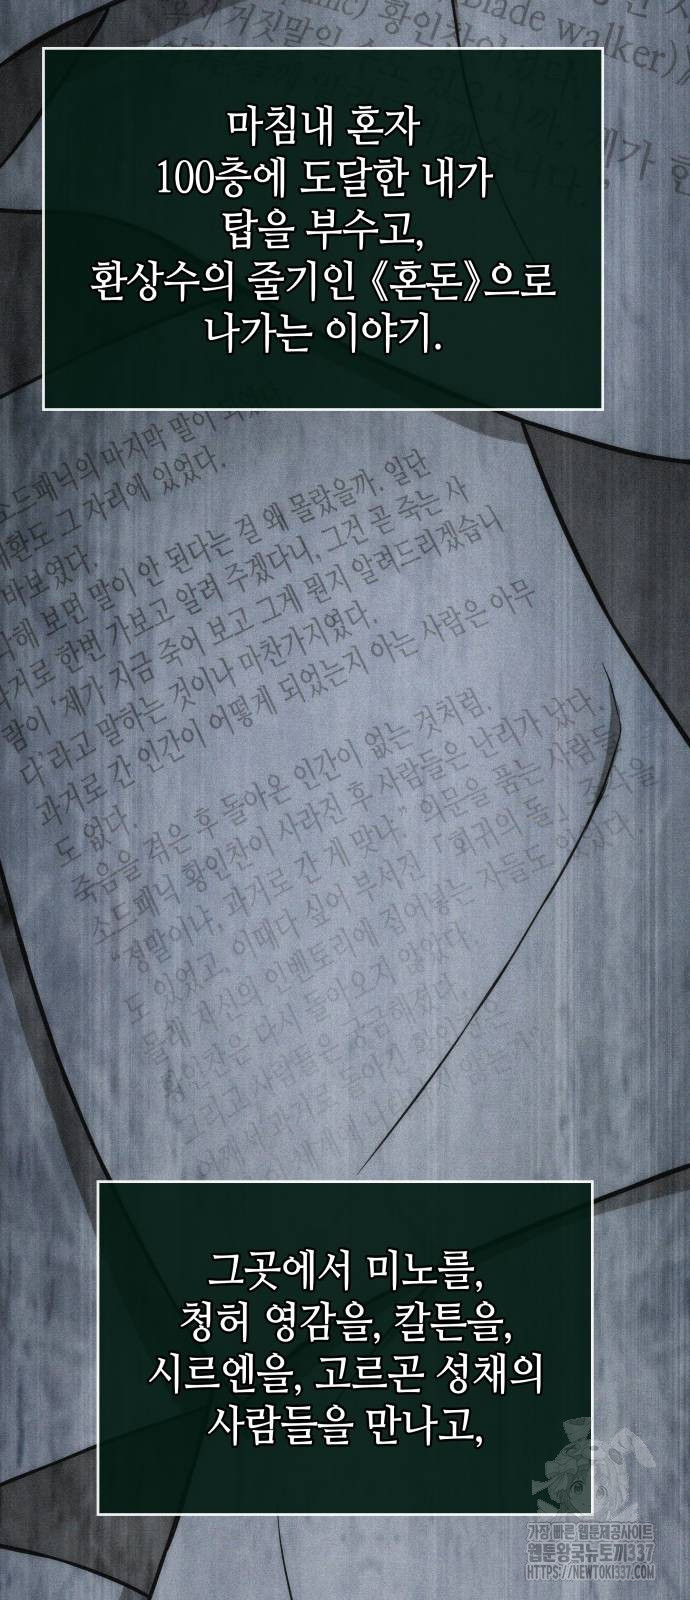 Blade walker)》
황인찬이
거짓말일 수도 있으니까, 제가 한
마침내 혼자
100층에 도달한 내가
탑을 부수고,
환상수의 줄기인 《혼돈》으로
나가는 이야기.
소드패닉의 마지막 말이 되었다.
그 자리에 있었다.
바보였다.
해 보면 말이 안 된다는 걸 왜 몰랐을까. 일단
과거로 한번 가보고 알려 주겠다니, 그건 곧 죽는 사
람이 ‘제가 지금 죽어 보고 그게 뭔지 알려드리겠습니
다’라고 말하는 것이나 마찬가지였다.
과거로 간 인간이 어떻게 되었는지 아는 사람은 아무
도 없다.
죽음을 겪은 후 돌아온 인간이 없는 것처럼.
소드패닉 황인찬이 사라진 후 사람들은 난리가 났다.
“정말이냐, 과거로 간 게 맞냐.” 의문을 품는 사람들
도 있었고, 이때다 싶어 부서진 「회귀의 돌」 조각을
몰래 자신의 인벤토리에 집어넣는 자들도 있었다.
황인찬은 다시 돌아오지 않았다.
그리고 사람들은 궁금해졌다.
어째서 과거로 돌아간
그곳에서 미노를,
청허 영감을, 칼튼을,
시르엔을, 고르곤 성채의
사람들을 만나고,
가장 빠른 웹툰제공사이트
웹툰왕국뉴토끼337
HTTPS://NEWTOKI337.COM